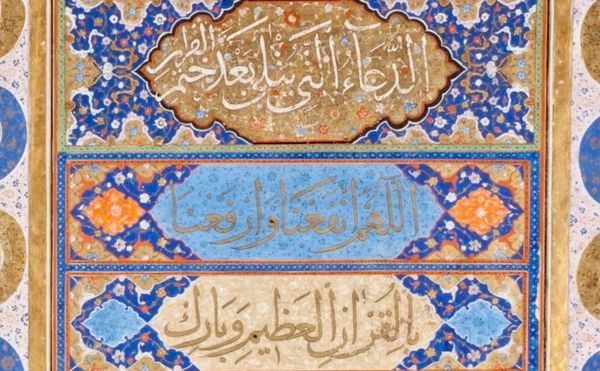 الدعاء التي يتلى بعد ختم القرآن
اللهم انفعنا وارفعنا
بالقرآن العظيم وبارك